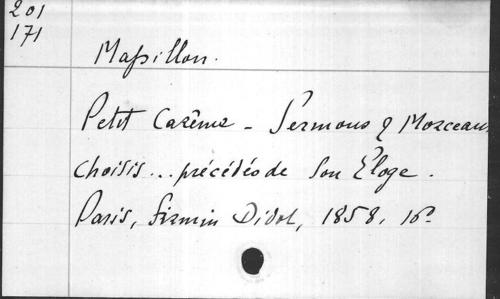 201
171
Massillon.
Petit Carême - Sermons & Morceaux
choisis... précédés de son Éloge.
Paris, Firmin Didot, 1858, 16º